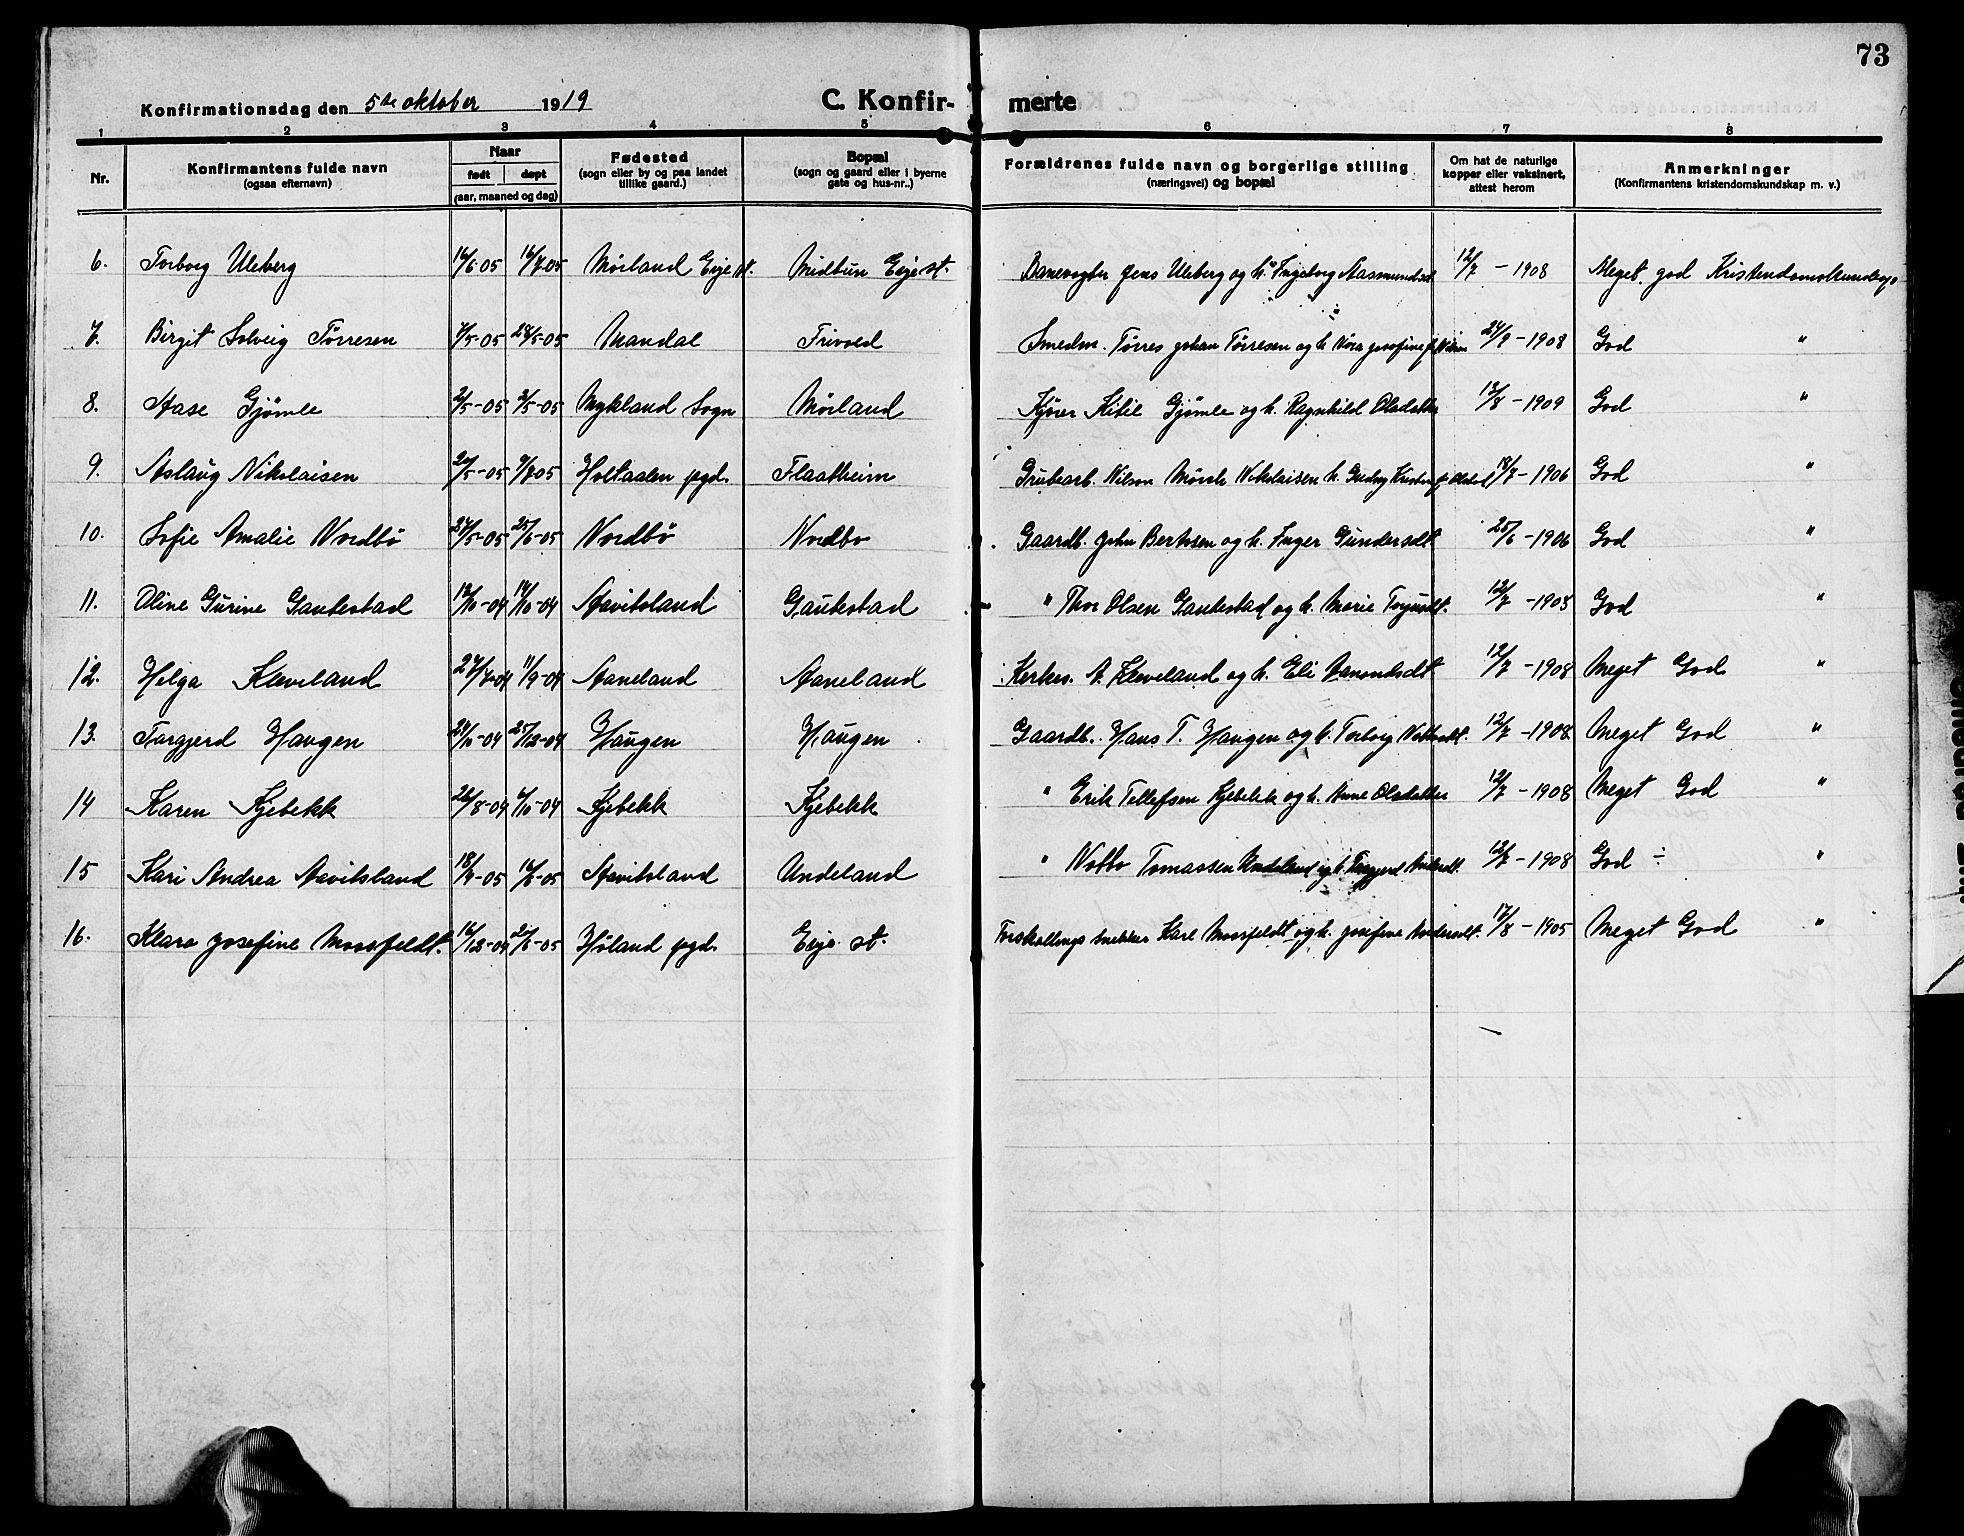 73
Konfirmationsdag den 5te oktober 1919 C. Konfir- merte
1 2 3 4 5 6 7 8
Nr. Konfirmantens fulde navn (ogsaa efternavn) Naar født døpt (aar, maaned og dag) Fødested (sogn eller by og paa landet tillike gaard.) Bopæl (sogn og gaard eller i byerne gate og hus-nr..) Forældrenes fulde navn og borgerlige stilling (næringsvei) og bopæl Om hat de naturlige kopper eller vaksinert, attest herom Anmerkninger (Konfirmantens kristendomskundskap m. v.)
6. Torborg Uleberg 16/6-05 16/7-05 Mørland Evje st. Midtun Evje st. Banevogter Jens Uleberg og h. Ingeborg Aasmundsd. 12/7 - 1908 Meget god Kristendomskundskap
7. Birgit Solveig Tørresen 7/5-05 28/5-05 Mandal Trivold Smedm. Tørres Johan Tørresen og h. Nora Josefine f. Nilsen 24/9 - 1908 God "
8. Aase Gjømle 2/5-05 3/5-05 Mykland Sogn Mørland Kjører Kitil Gjømle og h. Ragnhild Olsdatter 13/8 - 1909 God "
9. Aslaug Nikolaisen 20/5-05 9/7-05 Holtaalen pgd. Flaatheim Grubearb. Nilson Mørch Nikolaisen h. Gudny 18/7 - 1906 God "
10. Sofie Amalie Nordbø 27/5-05 25/6-05 Nordbø Nordbo Gaardb. John Bertesen og h. Inger Gundersdt. 25/6 - 1906 God "
11. Oline Gurine Gautestad 12/10-04 16/10-04 Aavitsland Gautestad " Thor Olsen Gautestad og h. Marie 12/7 - 1908 God "
12. Helga Kleveland 27/7-04 11/9-04 Aaneland Aaneland Kirkes. A. Kleveland og h. Eli Aanondsdt. 12/7 - 1908 Meget God "
13. Torgjerd Haugen 24/10-04 27/12-04 Haugen Haugen Gaardb. Hans T. Haugen og h. Torborg 12/7 - 1908. Meget God "
14 Karen Kjebekk 26/8-04 2/10-04 Kjebekk Kjebekk " Erik Tellefsen Kjebekk og h. Anne Olsdatter 12/7 - 1908 Meget God "
15 Kari Andrea Aavitsland 18/4-05 14/5-05 Aavitsland Undeland " Notto Tomassen Undeland og h. Torgjerd 12/7 - 1908 God ÷ "
16. Klara Josefine Mossfeldt. 16/12-04 21/6-05 Høland pgd. Evje st. Forskallings snekker Karl Mossfeldt og h. Josefine Andersdt. 17/8 - 1905 Meget God "